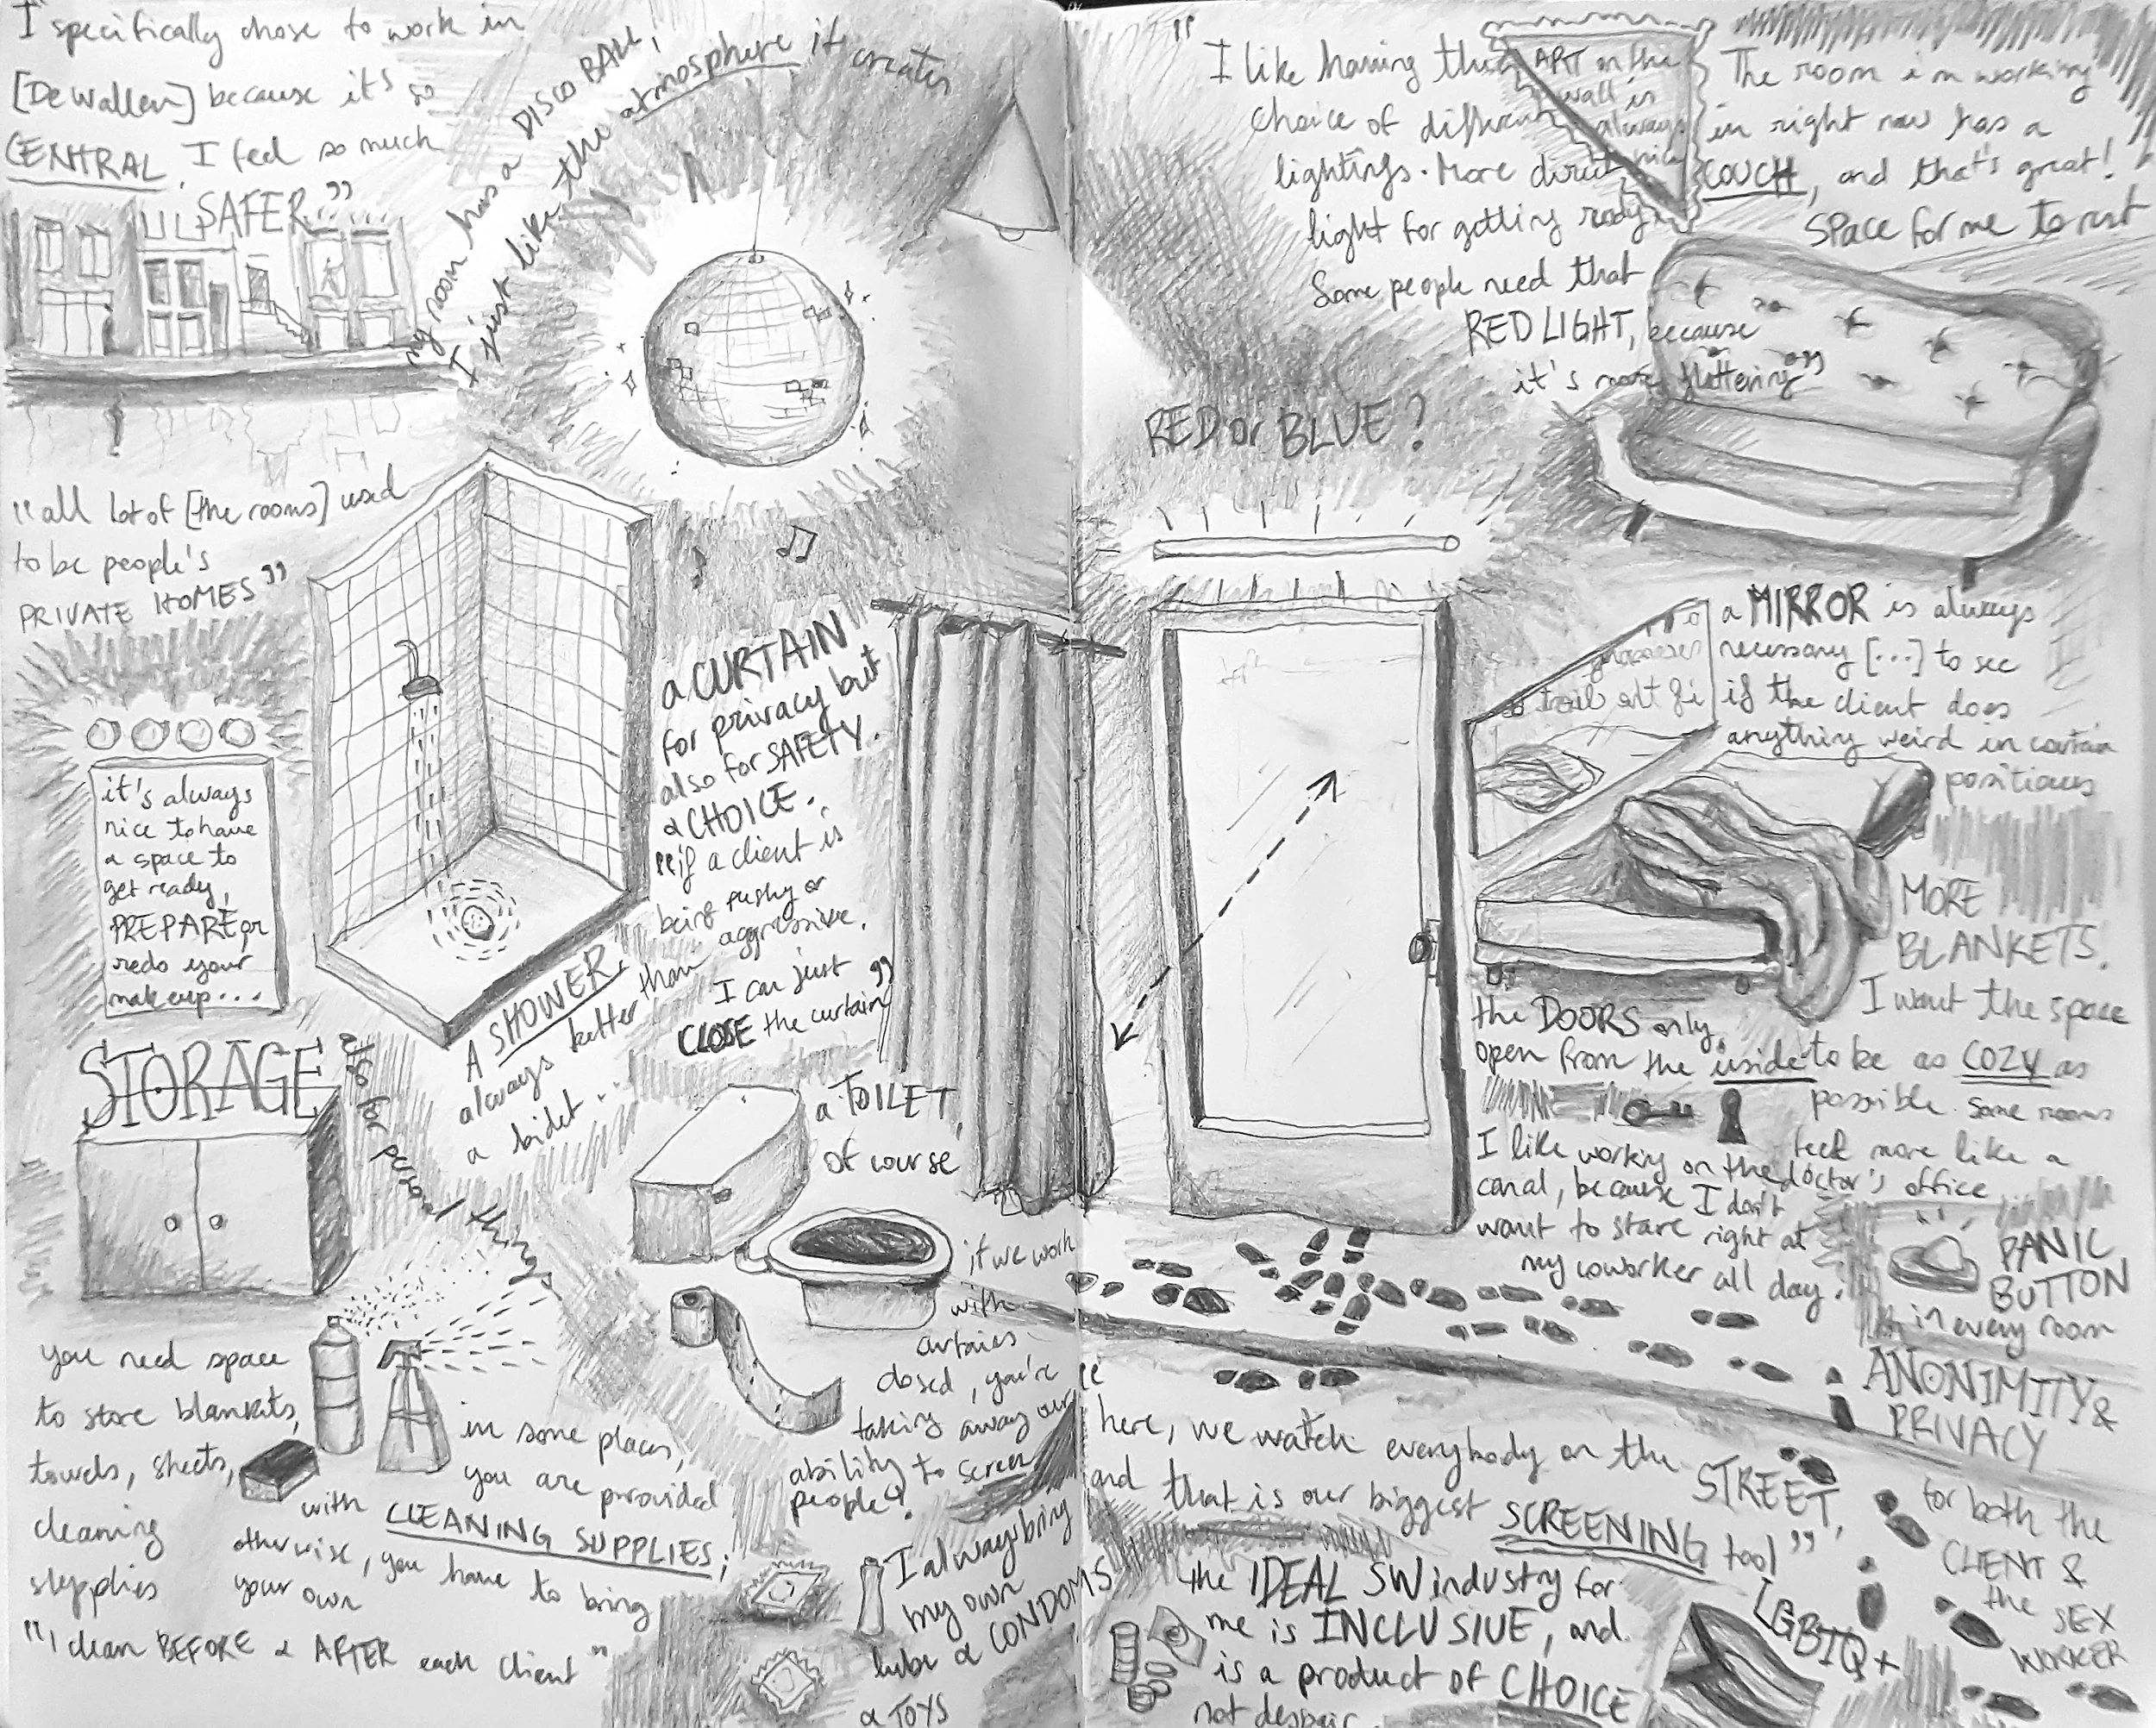 I specifically chose to work in
[De Wallen] because it's so
CENTRAL. I feel so much
SAFER"
my room has a DISCO BALL,
I just like the atmosphere it creates
"all lot of [the rooms] used
to be people's
PRIVATE HOMES"
it's always
nice to have
a space to
get ready,
PREPARE or
redo your
makeup...
A SHOWER,
always better than
a bidet...
a CURTAIN
for privacy but
also for SAFETY.
& CHOICE.
"if a client is
being pushy or
aggressive.
I can just
CLOSE the curtain"
STORAGE
also for personal things
you need space
to store blankets,
towels, sheets,
cleaning
slepplies
in some places,
you are provided
with CLEANING SUPPLIES;
otherwise, you have to bring
your own
"I clean BEFORE & AFTER each client"
a TOILET,
of course
if we work
with
curtains
closed, you're
taking away our
ability to screen
people?
I alway bring
my own
lube & CONDOMS
& TOYS
"I like having the
choice of different
lightings. More direct
light for getting ready
Some people need that
RED LIGHT, because
it's more flattering"
ART on the
wall is
always
nice
The room i'm working
in right now has a
COUCH, and that's great!
Space for me to rest
RED or BLUE?
a MIRROR is always
necessary [...] to see
if the client does
anything weird in certain
positions
MORE
BLANKETS.
I want the space
to be as COZY as
possible. Some rooms
feel more like a
doctor's office...
the DOORS only
open from the inside
I like working on the
canal, because I don't
want to stare right at
my coworker all day.
PANIC
BUTTON
in every room
ANONIMITY &
PRIVACY
for both the
CLIENT &
the SEX
WORKER
"here, we watch everybody on the STREET,
and that is our biggest SCREENING tool"
the IDEAL SW industry for
me is INCLUSIVE, and
is a product of CHOICE
not despair.
LGBTQ+